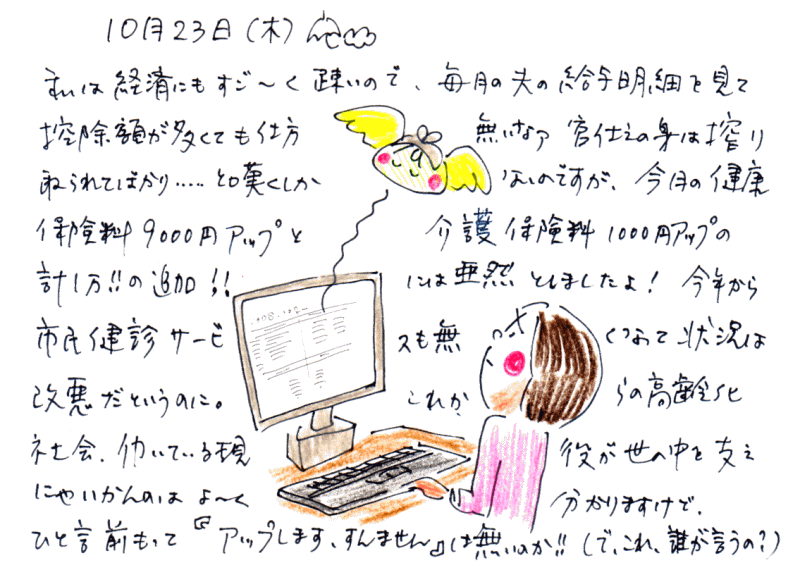 10月23日(木)
私は経済にもすご〜く疎いので、毎月の夫の給与明細を見て
控除額が多くても仕方無いなァ 宮仕えの身は搾り
取られてばかり‥‥‥と嘆くしかないのですが、今月の健康
保険料9000円アップと介護保険料1000円アップの
計1万!!の追加!!には亜然としましたよ! 今年から
市民健診サービスも無くなって状況は
改悪だというのに。これからの高齢化
社会、働いている現役が世の中を支え
にゃいかんのはよ〜く分かりますけで、
ひと言前もって『アップします、すんません』は無いのか!!(で、これ、誰が言うの?)